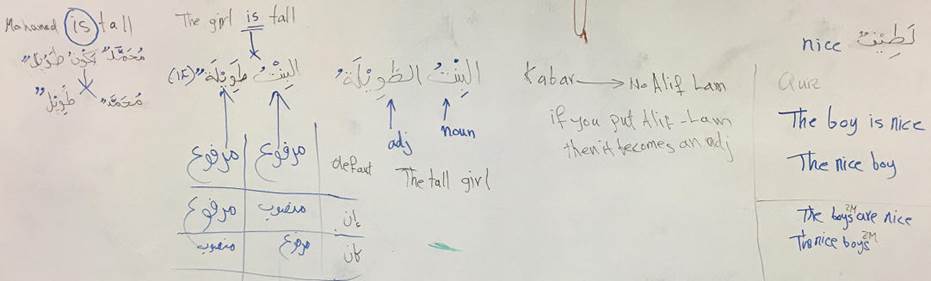 Mohamed is tall
مُحَمَّدٌ يَكُونُ طَوِيلٌ
مُحَمَّدٌ طَوِيلٌ
The girl is tall
البِنْتُ طَوِيلَةٌ
مرفوع مرفوع default
منصوب مرفوع إن
مرفوع منصوب كان
البِنْتُ الطَّوِيلَةُ
adj noun
The tall girl
Kabar → No Alif Lam
if you put Alif-Lam
then it becomes an adj
nice لَطِيفٌ
Quiz
The boy is nice
The nice boy
The boys 2M are nice
The nice boys 2M